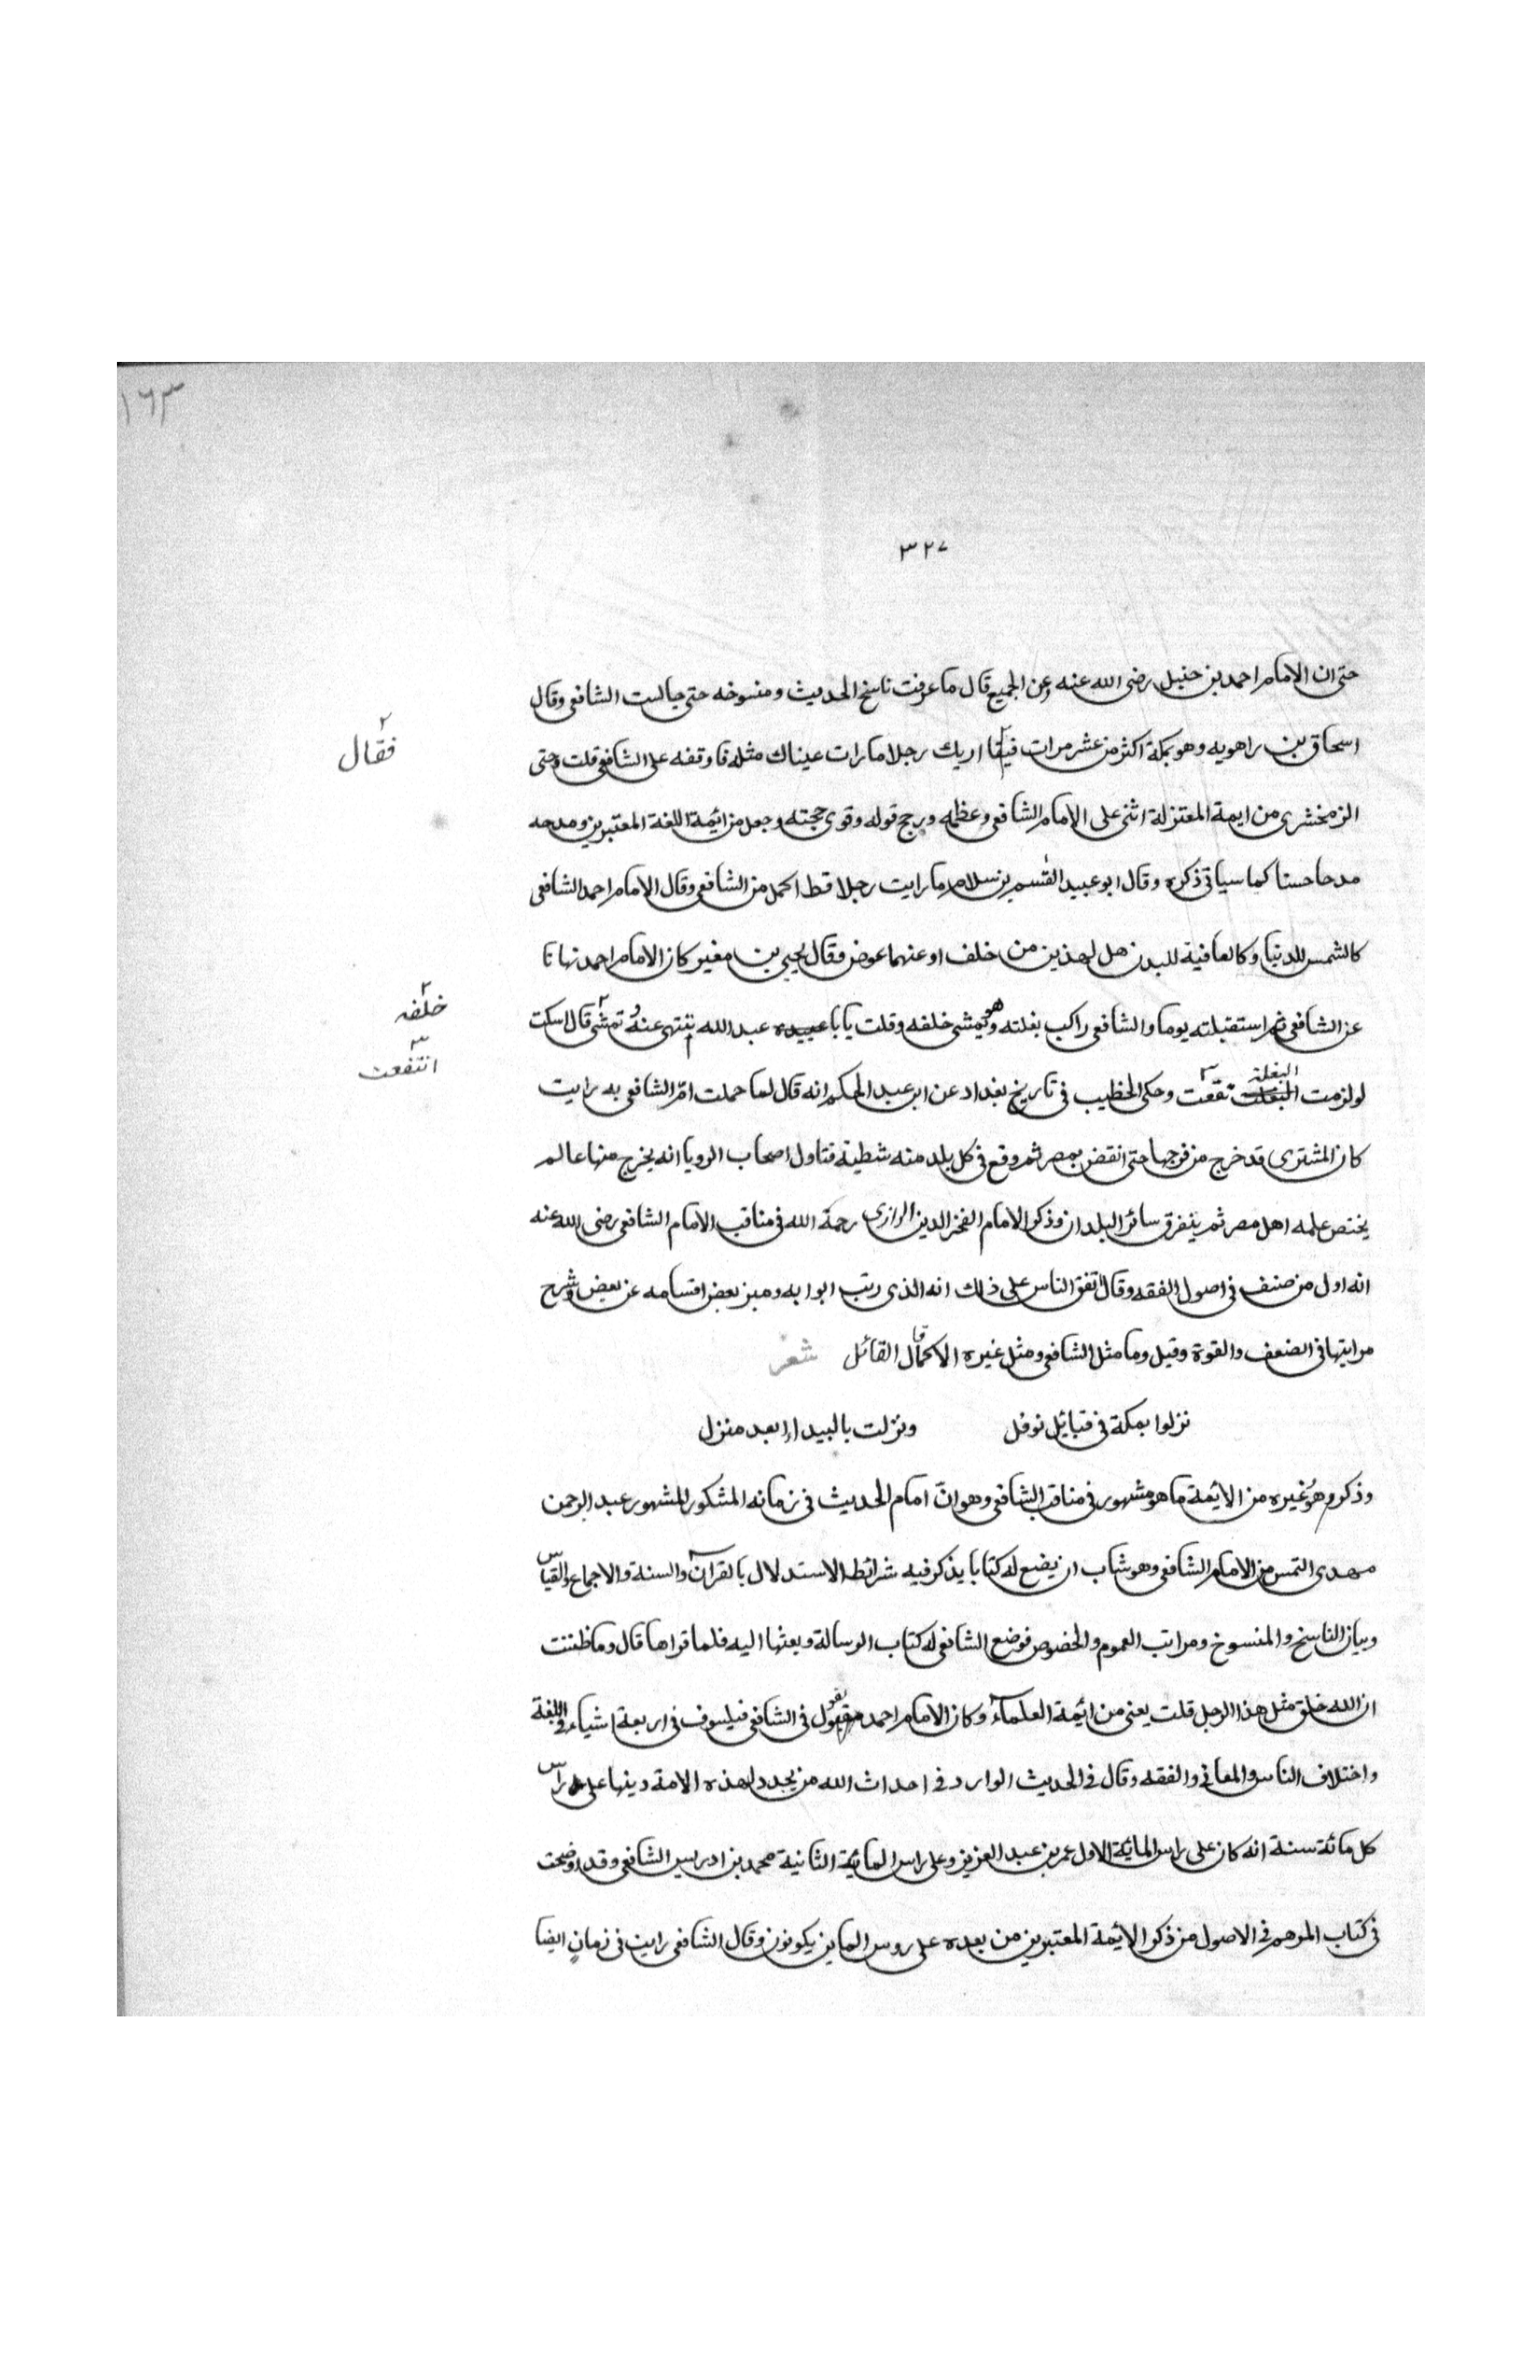 ١٦٣
٣٢٧
حتى ان الامام احمد بن حنبل رضى الله عنه وعن الجميع قال ما عرفت ناسخ الحديث ومنسوخه حتى جالست الشافعى وقال
اسحاق بن راهويه وهو بمكة اكثر من عشر مرات اريك رجلا ما رات عيناك مثله فاوقفه على الشافعى قلت وحتى
فقال
الزمخشرى من ايمة المعتزلة اثنى على الامام الشافعى وعظمه ورجح قوله وقوى حجته وجعل من ائيمة اللغة المعتبرين ومدحه
مدحا حسنا كما سياتى ذكره وقال ابو عبيد القسم بن سلام ما رايت رجلا قط اكمل من الشافعى وقال الامام احمد الشافعى
كالشمس للدنيا وكالعافية للبدن هل لهذين من خلف او عنهما عوض وقال يحيى بن معين كان الامام احمد نهانا
عن الشافعى ثم استقبلته يوما والشافعى راكب بغلته وهو يمشى خلفه وقلت يابا عبد الله تنتهى عنه وتمشى قال اسكت
خلفه
لو لزمت البغلة نفعت وحكى الخطيب فى تاريخ بغداد عن ابن عبد الحكم انه قال لما حملت ام الشافعى به رايت
انتفعت
كان المشترى قد خرج من فرجها حتى انقض بمصر ثم وقع فى كل بلد منه شظية فتاول اصحاب الرويا انه يخرج منها عالم
يختص علمه اهل مصر ثم يتفرق سائر البلدان وذكر الامام الفخر الدين الرازى رحمة الله فى مناقب الامام الشافعى رضى الله عنه
انه اول من صنف فى اصول الفقه وقال اتفق الناس على ذلك انه الذى رتب ابوابه وميز بعض اقسامه عن بعض وشرح
مراتبها فى الضعف والقوة وقيل وما مثل الشافعى ومثل غيره الا كما قال القائل شعر
نزلوا بمكة فى قبائيل نوفل ونزلت بالبيداء ابعد منزل
وذكر وهو غيره من الائيمة ما هو مشهور فى مناقب الشافعى وهو انّ امام الحديث فى زمانه المشكور المشهور عبد الرحمن
مهدى التمس من الامام الشافعى وهو شاب ان يضع له كتابا يذكر فيه شرائط الاستدلال بالقرآن والسنة والاجماع والقياس
وبيان الناسخ والمنسوخ ومراتب العموم والخصوص فوضع الشافعى له كتاب الرسالة وبعثها اليه فلما قراها قال وما ظننت
ان الله خلق مثل هذا الرجل قلت يعنى من ائيمة العلماء وكان الامام احمد يقول فى الشافعى فيلسوف فى اربعة اشياء فى اللغة
واختلاف الناس والمعانى والفقه وقال فى الحديث الوارد فى احداث الله من يجدد لهذه الامة دينها على راس
كل مائة سنة انه كان على راس المائية الاول عمر بن عبد العزيز وعلى راس المائية الثانية محمد بن ادريس الشافعى وقد اوضحت
فى كتاب المرهم فى الاصول من ذكر الائيمة المعتبرين من بعده على روس الماين يكونون وقال الشافعى رايت فى زمانٍ ايضا